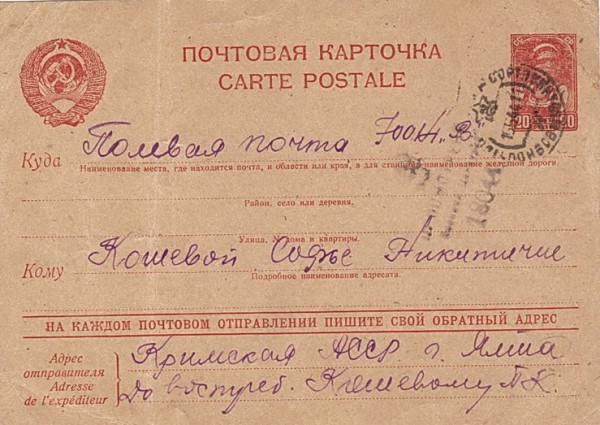 ПОЧТОВАЯ КАРТОЧКА
CARTE POSTALE
20 20
Куда Полевая почта
Наименование места, где находится почта, и области или края, а для станции наименование железной дороги.
Район, село или деревня.
Улица, № дома и квартиры.
Кому Кошевой Софье Никитичне
Подробное наименование адресата.
НА КАЖДОМ ПОЧТОВОМ ОТПРАВЛЕНИИ ПИШИТЕ СВОЙ ОБРАТНЫЙ АДРЕС
Адрес отправителя
Adresse de l'expéditeur
Кримская АССР г. Ялта
До востреб. Кошевому П.К.